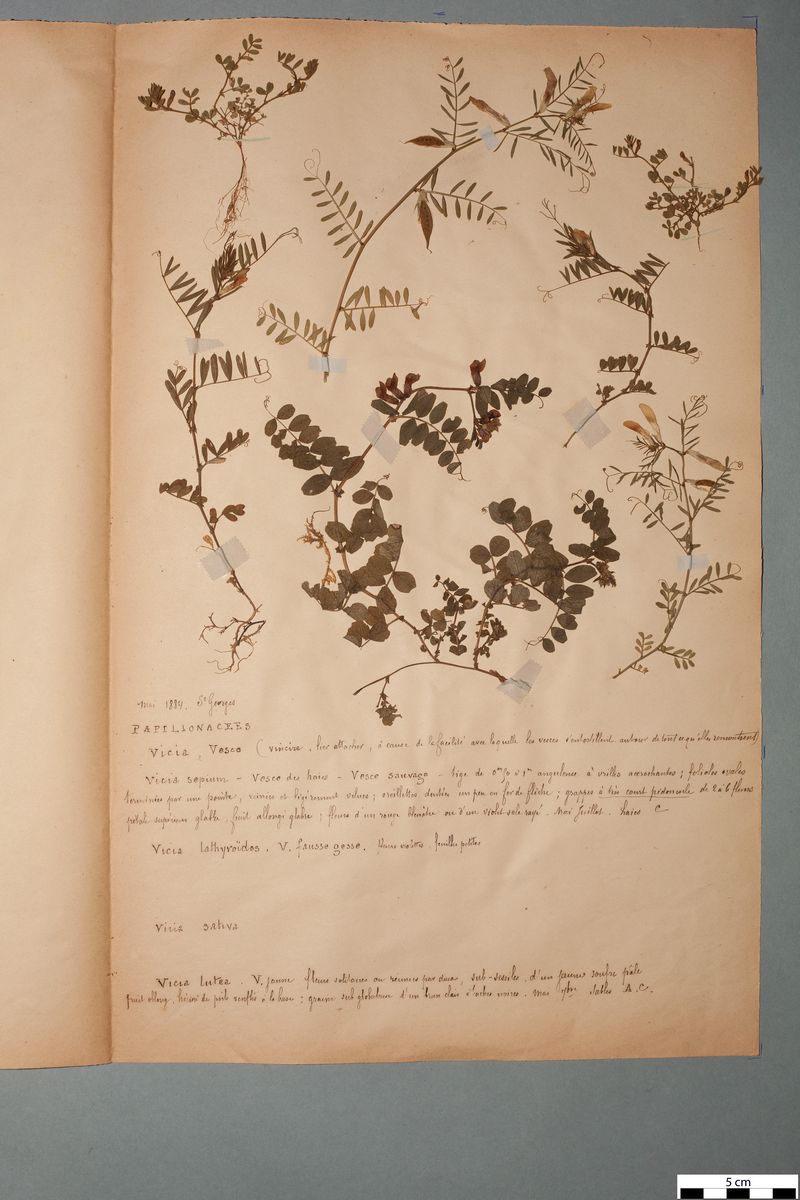 Mai 1884. St Georges
PAPILIONACEES
Vicia, Vesce (vincire, lier attacher, à cause de la facilité avec laquelle les vesces s'entortillent autour de tout ce qu'elles rencontrent)
Vicia sepium - Vesce des haies - Vesce sauvage - tige de à 1m anguleuse à vrilles accrochantes; folioles ovales
terminées par une pointe, veinées et légèrement velues; oreillettes dentées un peu en fer de flèche; grappes à très court pédoncule de 2 à 6 fleurs
pétale supérieur glabre, fruit allongé glabre; fleurs d'un rouge bleuâtre ou d'un violet sale rayé. Mai Juillet. haies C
Vicia lathyroïdes. V. fausse gesse. fleurs violettes. feuilles petites
Vicia sativa
Vicia lutea. V. jaune fleurs solitaires ou réunies par deux, sub-sessiles, d'un jaune soufre pâle
fruit oblong, hérissé de poils renflés à la base; graine sub globuleuse d'un brun clair à taches noires. Mai 7bre Sables A.C.
5 cm